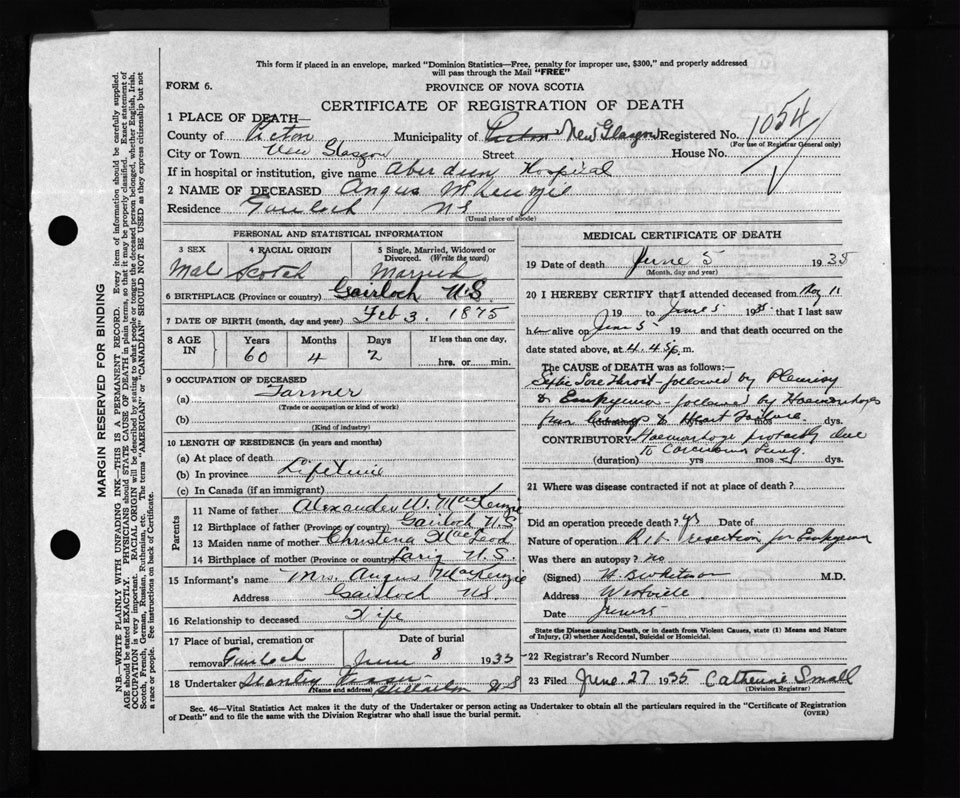 This form if placed in an envelope, marked "Dominion Statistics—Free, penalty for improper use, $300," and properly addressed
will pass through the Mail "FREE"
FORM 6.
PROVINCE OF NOVA SCOTIA
CERTIFICATE OF REGISTRATION OF DEATH
1 PLACE OF DEATH—
County of Pictou Municipality of Pictou New Glasgow Registered No. 1054
(For use of Registrar General only)
City or Town New Glasgow Street House No.
If in hospital or institution, give name Aberdeen Hospital
2 NAME OF DECEASED Angus McKenzie
Residence Gairloch NS
(Usual place of abode)
PERSONAL AND STATISTICAL INFORMATION
3 SEX 4 RACIAL ORIGIN 5 Single, Married, Widowed or
Divorced. (Write the word)
Male Scotch Married
6 BIRTHPLACE (Province or country) Gairloch N.S.
7 DATE OF BIRTH (month, day and year) Feb 3. 1875
8 AGE IN Years Months Days If less than one day,
60 4 2 hrs. or min.
9 OCCUPATION OF DECEASED
(a) Farmer
(Trade or occupation or kind of work)
(b)
(Kind of industry)
10 LENGTH OF RESIDENCE (in years and months)
(a) At place of death
(b) In province Lifetime
(c) In Canada (if an immigrant)
Parents
11 Name of father Alexander W. MacKenzie
12 Birthplace of father (Province or country) Gairloch N.S
13 Maiden name of mother Christena MacLeod
14 Birthplace of mother (Province or country) N.S.
15 Informant's name Mrs. Angus MacKenzie
Address Gairloch NS
16 Relationship to deceased Wife
17 Place of burial, cremation or Date of burial
removal Gairloch June 8 1935
18 Undertaker NS
(Name and address)
MEDICAL CERTIFICATE OF DEATH
19 Date of death June 5 1935
(Month, day and year)
20 I HEREBY CERTIFY that I attended deceased from May 11
19 to June 5 1935 that I last saw
him alive on June 5 19 and that death occurred on
date stated above, at 4.45 p.m.
The CAUSE OF DEATH was as follows:—
Septic Sore Throat - followed by Pleurisy
& Empyema - followed by Haemorrhages
from & Heart Failure mos dys.
CONTRIBUTORY Haemorrhage probably due
to Carcinoma Lung.
(duration) yrs mos dys.
21 Where was disease contracted if not at place of death?
Did an operation precede death? yes Date of
Nature of operation Rib resection for Empyema
Was there an autopsy? no
(Signed) M.D.
Address Westville.
Date June
State the Disease causing Death, or in death from Violent Causes, state (1) Means and Nature
of Injury, (2) whether Accidental, Suicidal or Homicidal.
22 Registrar's Record Number
23 Filed June 27 1935 Catherine Small
(Division Registrar)
Sec. 46—Vital Statistics Act makes it the duty of the Undertaker or person acting as Undertaker to obtain all the particulars required in the "Certificate of Registration
of Death" and to file the same with the Division Registrar who shall issue the burial permit.
(OVER)
MARGIN RESERVED FOR BINDING
N.B.—WRITE PLAINLY WITH UNFADING INK—THIS IS A PERMANENT RECORD. Every item of information should be carefully supplied.
AGE should be stated EXACTLY. PHYSICIANS should STATE CAUSE OF DEATH in plain terms, so that it may be properly classified. Exact statement of
OCCUPATION is very important. RACIAL ORIGIN will be described by stating to what people or tongue the deceased person belonged, whether English, Irish,
Scotch, French, German, Russian, Ruthenian etc. The terms "AMERICAN" or "CANADIAN" SHOULD NOT BE USED as they express citizenship but not
a race or people. See instructions on back of Certificate.